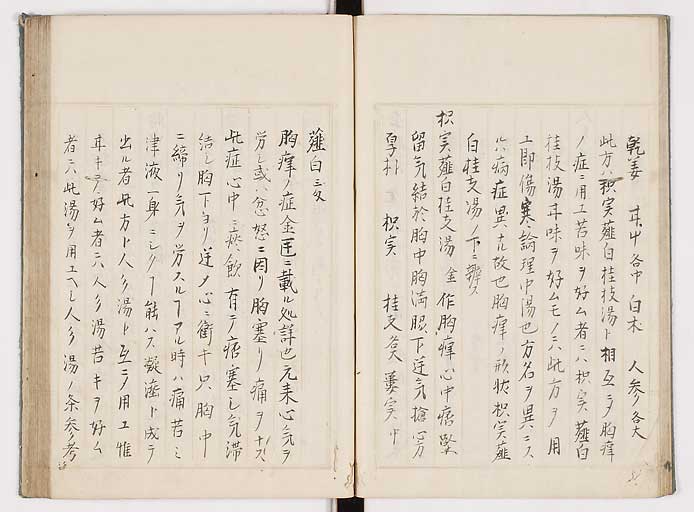 乾姜 甘艸 各中 白朮 人参各大
此方ハ枳実薤白桂枝湯ト相互ニヲ胸痺
ノ症ニ用エ苦味ヲ好ム者ニハ枳実薤白
桂枝湯甘味ヲ好ムモノニハ此方ヲ用
エ即傷寒論理中湯也方名ヲ異ニス
ル病症異ナル故也胸痺ノ形状枳実薤
白桂支湯ノ下ニ辨ス
枳実薤白桂支湯 金 作胸痺心中痞堅
留気結於胸中胸満脇下逆気搶心方
厚朴 枳実 桂支各大 蔞実中
薤白三文
胸痺ノ症金匱ニ載ル処詳也元来心気ヲ
労シ或ハ忿怒ニ因リ胸塞リ痛ヲナス
此症心中ニ淡飲有テ痞塞シ気滞
結シ胸下ヨリ逆メ心ニ衝十只胸中
ニ締リ気ヲ労スルヿアル時ハ痛苦シ
津液一身ニシクヿ能ハス凝濇ト成テ
出ル者此方ト人参湯ト互ニヲ用エ惟
甘キヲ好ム者ニハ人参湯苦キヲ好ム
者ニハ此湯ヲ用エヘシ人参湯ノ条参考